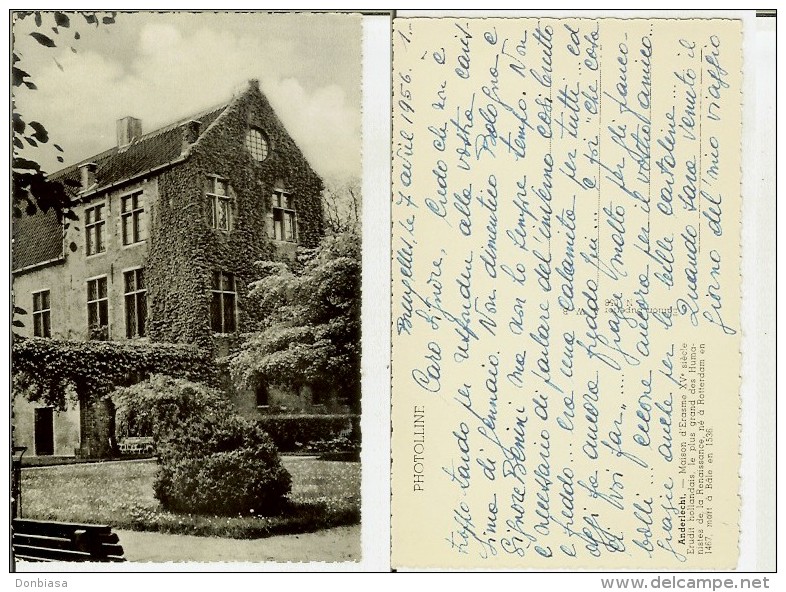 PHOTOLLINE
Bruxelles, le 7 avril 1956. 1.-
Caro Signore, Credo che non è
troppo tardo per rispondere alla vostra caris
sima di gennaio. Non dimentico Bologna e
Signore Benini ma non ho sempre tempo. Non
è necessario di parlare dell'inferno così brutto
e freddo... era una calamita per tutte... ed
oggi fa ancora freddo qui... E poi "che cosa
farà"... Grazie molto per gli franco-
bolli... ancora per il vostro amico...
grazie anche per le belle cartoline...
Quando sara venuto il
giorno del mio viaggio
Anderlecht. — Maison d'Erasme XVe siècle
Erudit hollandais, le plus grand des Huma-
nistes de la Renaissance, né à Rotterdam en
1467, mort à Bâle en 1536.
Donbiasa
www.delcampe.net